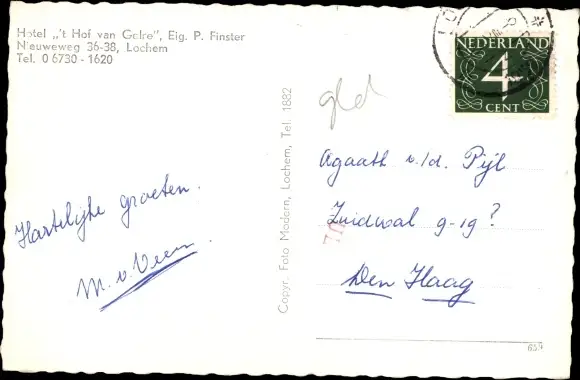 Hotel „'t Hof van Gelre", Eig. P. Finster
Nieuweweg 36-38, Lochem
Tel. 0 6730 - 1620
NEDERLAND
4
CENT
Copyr. Foto Modern, Lochem, Tel. 1882
Agaath v./d. Pijl
Zuidwal 9-19?
Den Haag
Hartelijke groeten.
M. v. Veen.